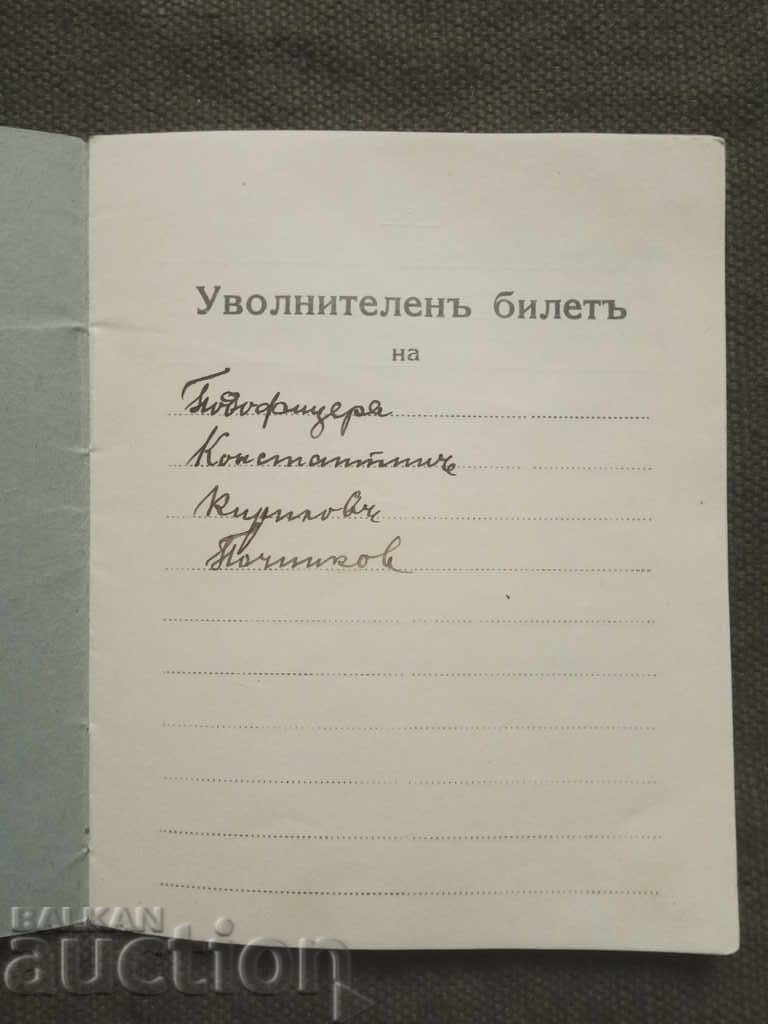 Уволнителенъ билетъ
на
Подофицера
Константинъ
Кириловъ
BALKAN
auction